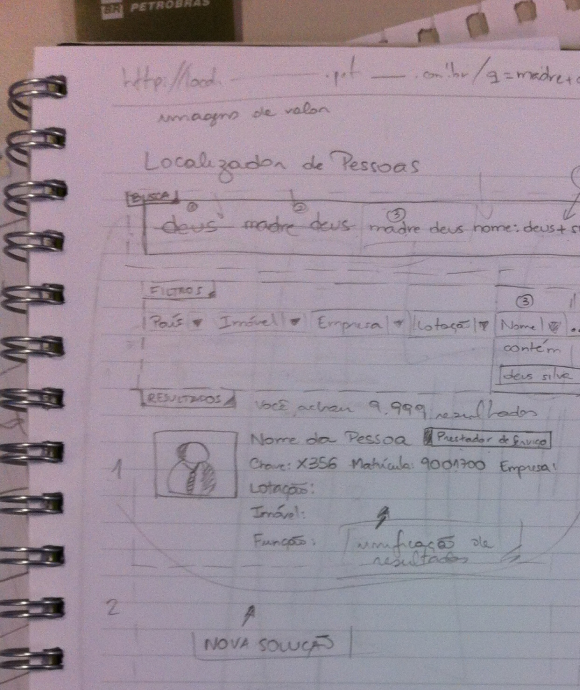 BR PETROBRAS
http://
.com.br/q=madre+
imagro de valor
Localizador de Pessoas
BUSCA
① ② ③
deus madre deus madre deus nome:deus+s
FILTROS
③
País Imóvel Empresa Lotação Nome
contém
deus silva
RESULTADOS Você achou 9.999 resultados
1
Nome da Pessoa Prestador de Serviço
Chave: X356 Matrícula: 9001700 Empresa:
Lotação:
Imóvel:
Função: unificação de
resultados
2
NOVA SOLUCÃO